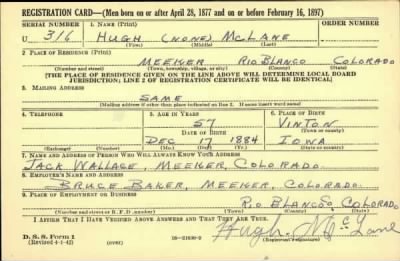 REGISTRATION CARD—(Men born on or after April 28, 1877 and on or before February 16, 1897)
SERIAL NUMBER 1. NAME (Print) ORDER NUMBER
U 316 HUGH (NONE) McLANE
(First) (Middle) (Last)
2. PLACE OF RESIDENCE (Print)
MEEKER RIO BLANCO COLORADO
(Number and street) (Town, township, village, or city) (County) (State)
[THE PLACE OF RESIDENCE GIVEN ON THE LINE ABOVE WILL DETERMINE LOCAL BOARD
JURISDICTION; LINE 2 OF REGISTRATION CERTIFICATE WILL BE IDENTICAL]
3. MAILING ADDRESS
SAME
[Mailing address if other than place indicated on line 2. If same insert word same]
4. TELEPHONE 5. AGE IN YEARS 6. PLACE OF BIRTH
57 VINTON
DATE OF BIRTH (Town or county)
DEC 17 1884 IOWA
(Exchange) (Number) (Mo.) (Day) (Yr.) (State or country)
7. NAME AND ADDRESS OF PERSON WHO WILL ALWAYS KNOW YOUR ADDRESS
JACK WALLACE, MEEKER, COLORADO
8. EMPLOYER'S NAME AND ADDRESS
BRUCE BAKER, MEEKER, COLORADO.
9. PLACE OF EMPLOYMENT OR BUSINESS
RIO BLANCO COLORADO
(Number and street or R. F. D. number) (Town) (County) (State)
I AFFIRM THAT I HAVE VERIFIED ABOVE ANSWERS AND THAT THEY ARE TRUE.
D. S. S. Form 1
(Revised 4-1-42) (over) 16-21630-2 Hugh McLane
(Registrant's signature)